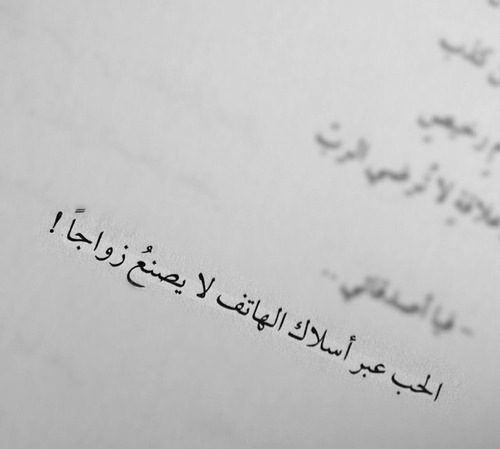 كذب
رخيص
لا تُرضي الربّ
- فيا أصدقائي ..
الحب عبر أسلاك الهاتف لا يصنعُ زواجاً !